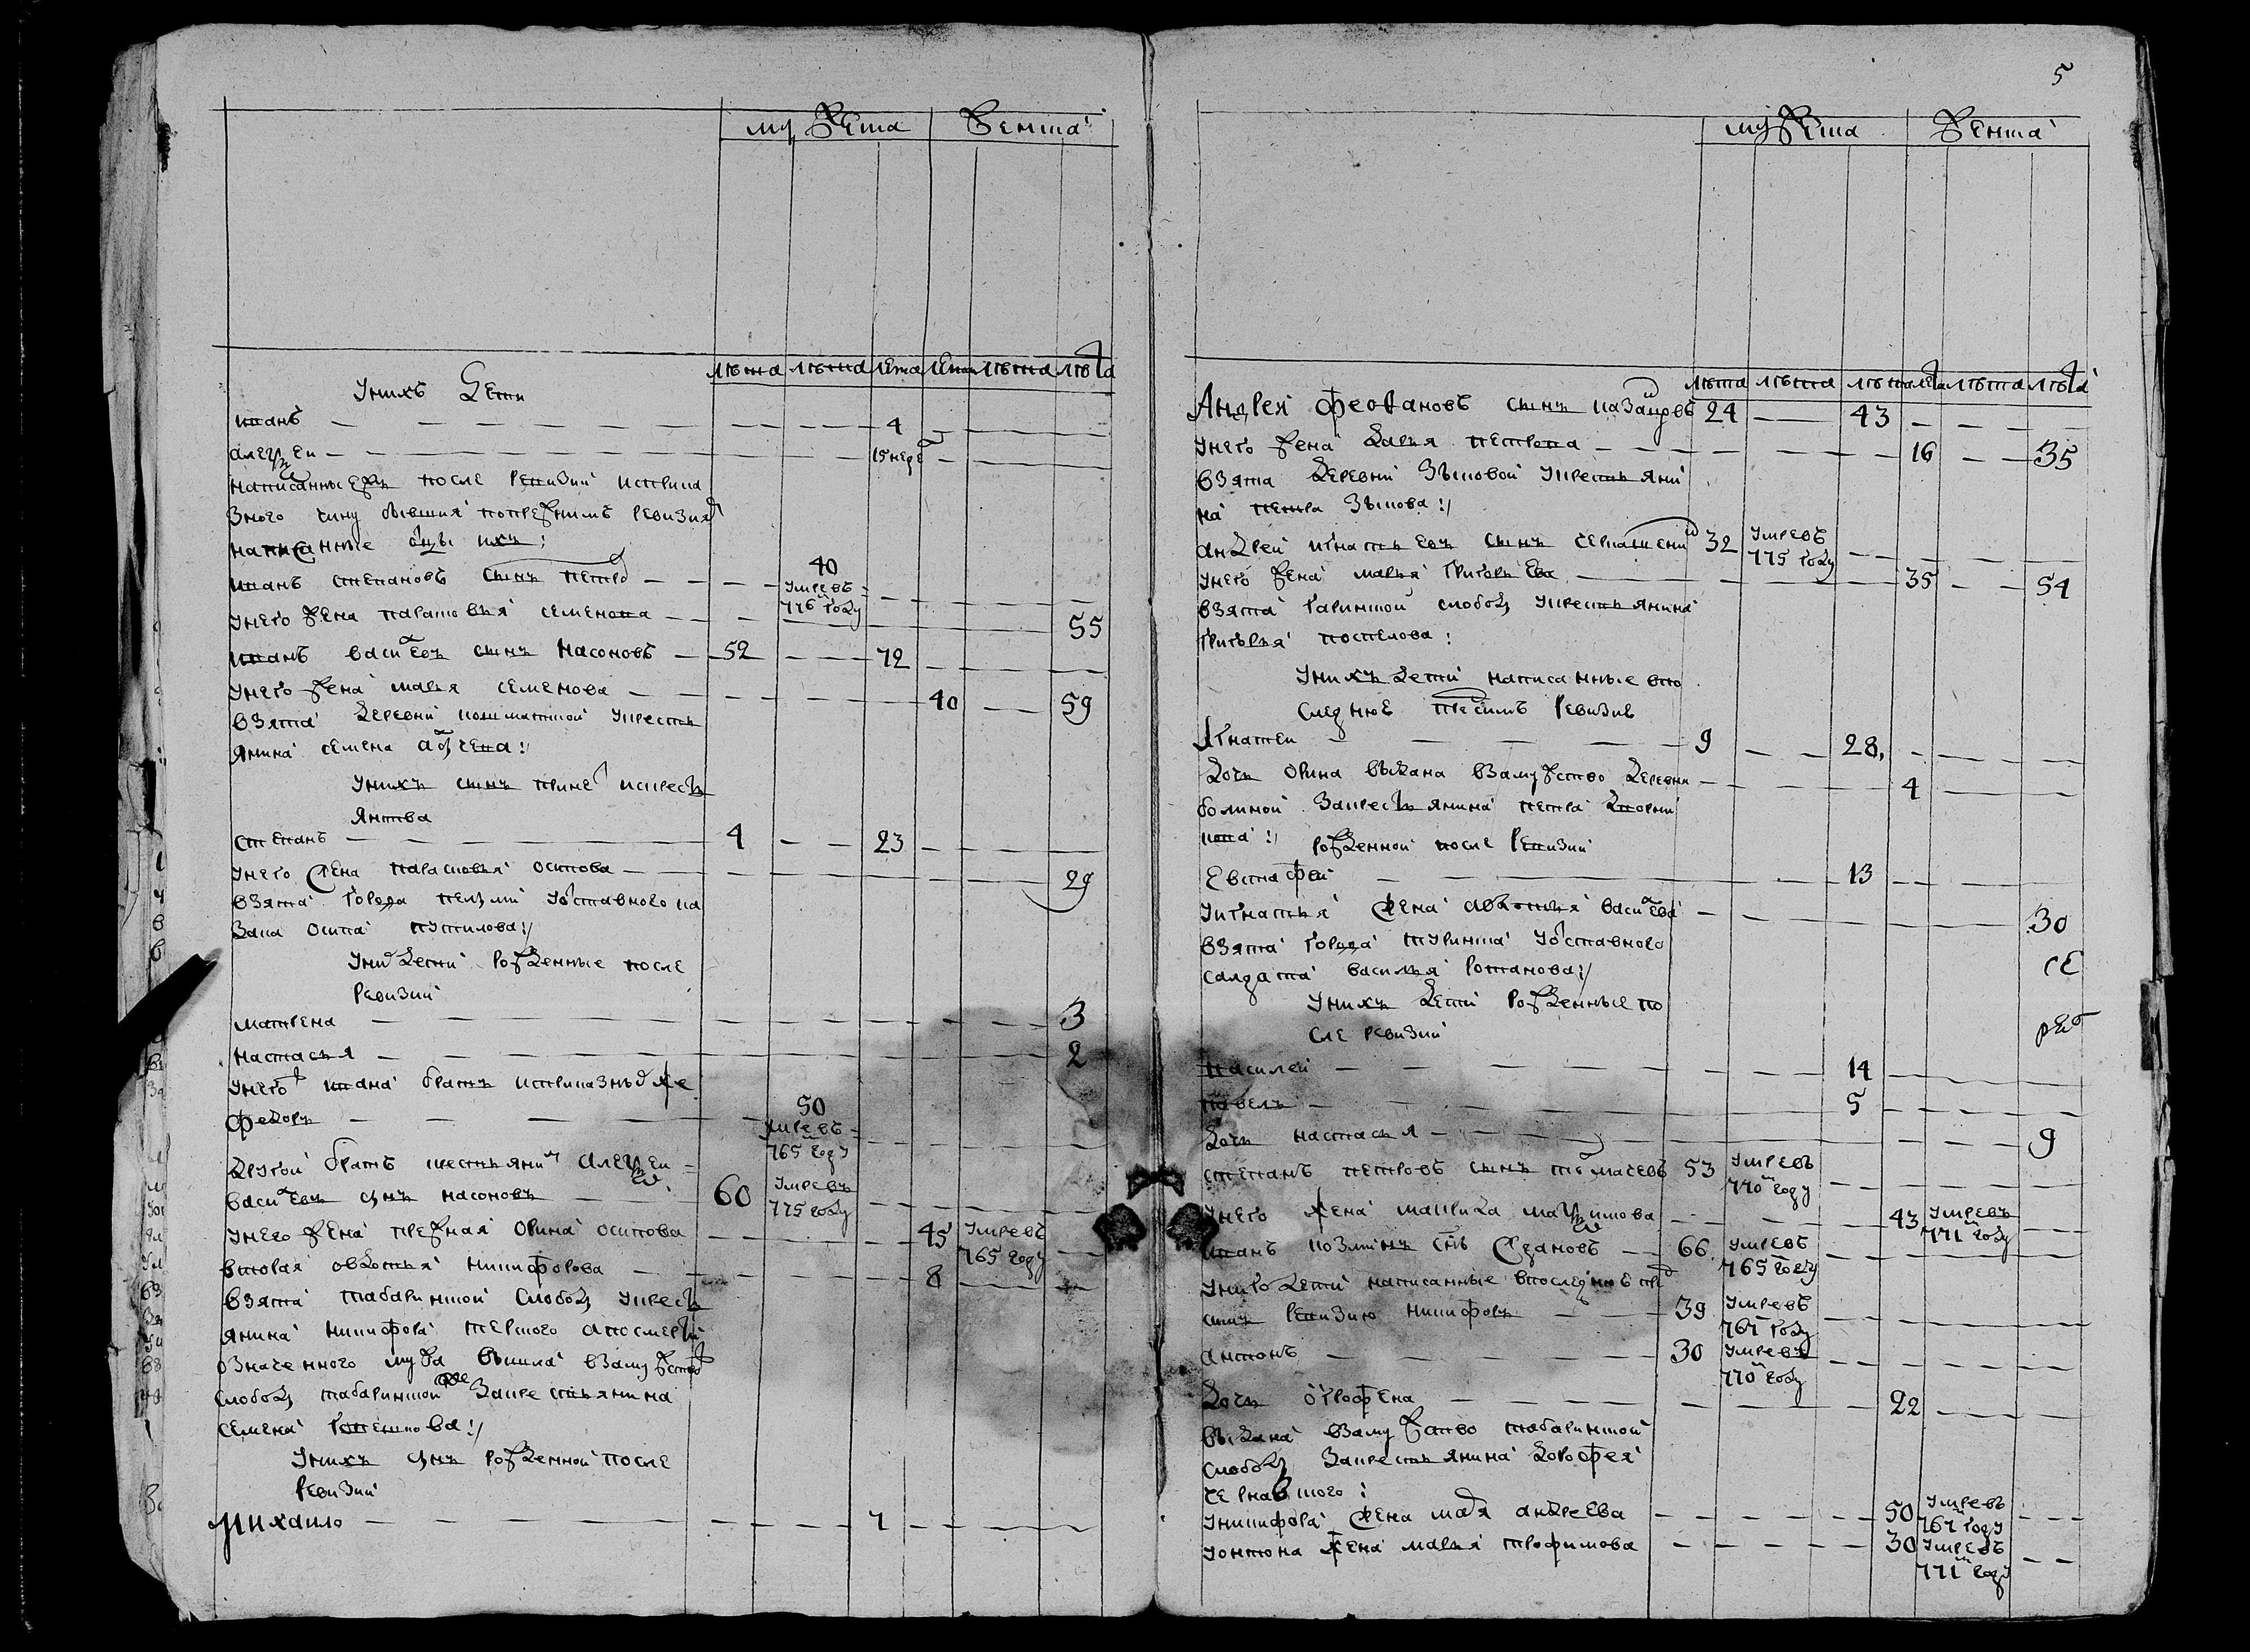 мужеска женска
лѣта лѣта лета лета лѣта лѣта
У них дети
иванъ — 4
алексеи — 15 неде
написанные после ревизии ис
зного чину бывшия попрежнимъ ревизия
написанные отцы ихъ:
иванъ степановъ сынъ — 40 умревъ 776 году
у него жена парасковья семенова — 55
иванъ василевъ сынъ насоновъ — 52 — 72
у него жена марья семенова — 40 — 59
взята деревни у крестъ
янина семена
У нихъ сынъ ис крест
янства
степанъ — 4 — 23
у него жена парасковья осипова — 29
взята города пелыми уоставного ка
зака осипа путилова:/
У них дети рожденные после
ревизии
матрена — 3
настасья — 2
у него ивана братъ
федоръ — 50 умревъ 765 году
другой братъ крестьянин алексеи
василевъ сынъ насоновъ — 60 умревъ 775 году
у него жена прежная орина осипова — 45 умревъ 765 году
вторая овдотья никифорова — 8
взята табаринской слободы у крест
янина никифора терского а по смерти
означенного мужа вышла взамужство
слободы табаринской же за крестьянина
семена:/
У нихъ сынъ рожденной после
ревизии
Михаило — 7
5
мужеска женска
лѣта лѣта лѣта лета лѣта лѣта
Андреи феофановъ сынъ — 24 — 43
у него жена дарья петрова — 16 — 35
взята деревни Зыковой у крестьяни
на петра Зыкова:/
андреи игнатьевъ сынъ — 32 умревъ 775 году
у него жена марья григорьева — 35 — 54
взята гаринской слободы у крестьянина
григорья поспелова:
У нихъ дети написанные впо
следнюю пред симъ ревизию
Игнатеи — 9 — 28
дочь орина выдана взамужство деревни — 4
за крестьянина петра
:/ рожденной после ревизии
Евстафеи — 13
у игнатья жена авдотья василева — 30
взята города туринска уоставного
салдата василья романова:/
У нихъ дети рожденные по
сле ревизии
василеи — 14
павелъ — 5
дочь настасья — 9
степанъ петровъ сынъ толмачевъ 53 умревъ 770 году
у него жена маприда максимова — 43 умревъ 771 году
иванъ козминъ снъ ждановъ — 66 умревъ 765 году
у него дети написанные впоследнюю пред
симъ ревизию никифоръ — 39 умревъ 767 году
антонъ — 30 умревъ 770 году
дочь огрофена — 22
выдана взамужство табаринской
слободы за крестьянина дорофея
чернавского:
у никифора жена марья андреева — 50 умревъ 767 году
у онтона жена марья трофимова — 30 умревъ 771 году